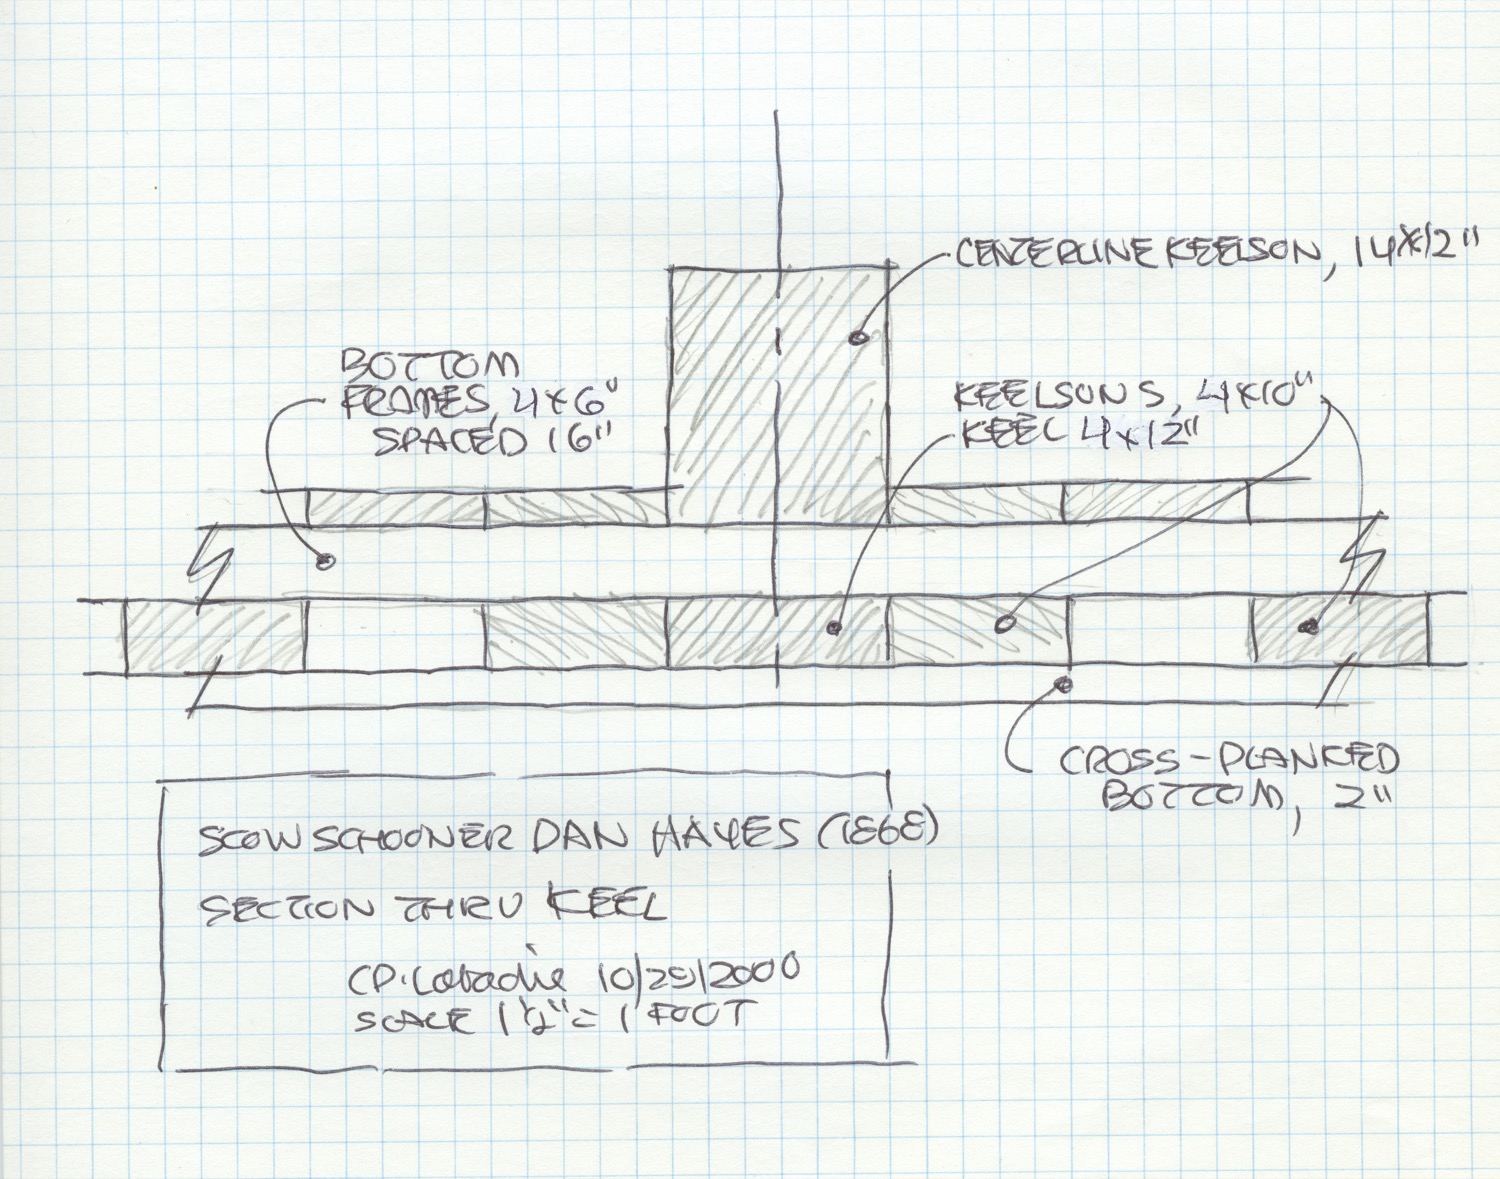 CENTERLINE KEELSON, 14X12"
BOTTOM
FRAMES, 4X6"
SPACED 16"
KEELSONS, 4X10"
KEEL 4X12"
CROSS-PLANKED
BOTTOM, 2"
SCOW SCHOONER DAN HAYES (1868)
SECTION THRU KEEL
CP. Labadie 10/29/2000
SCALE 1 1/2" = 1 FOOT